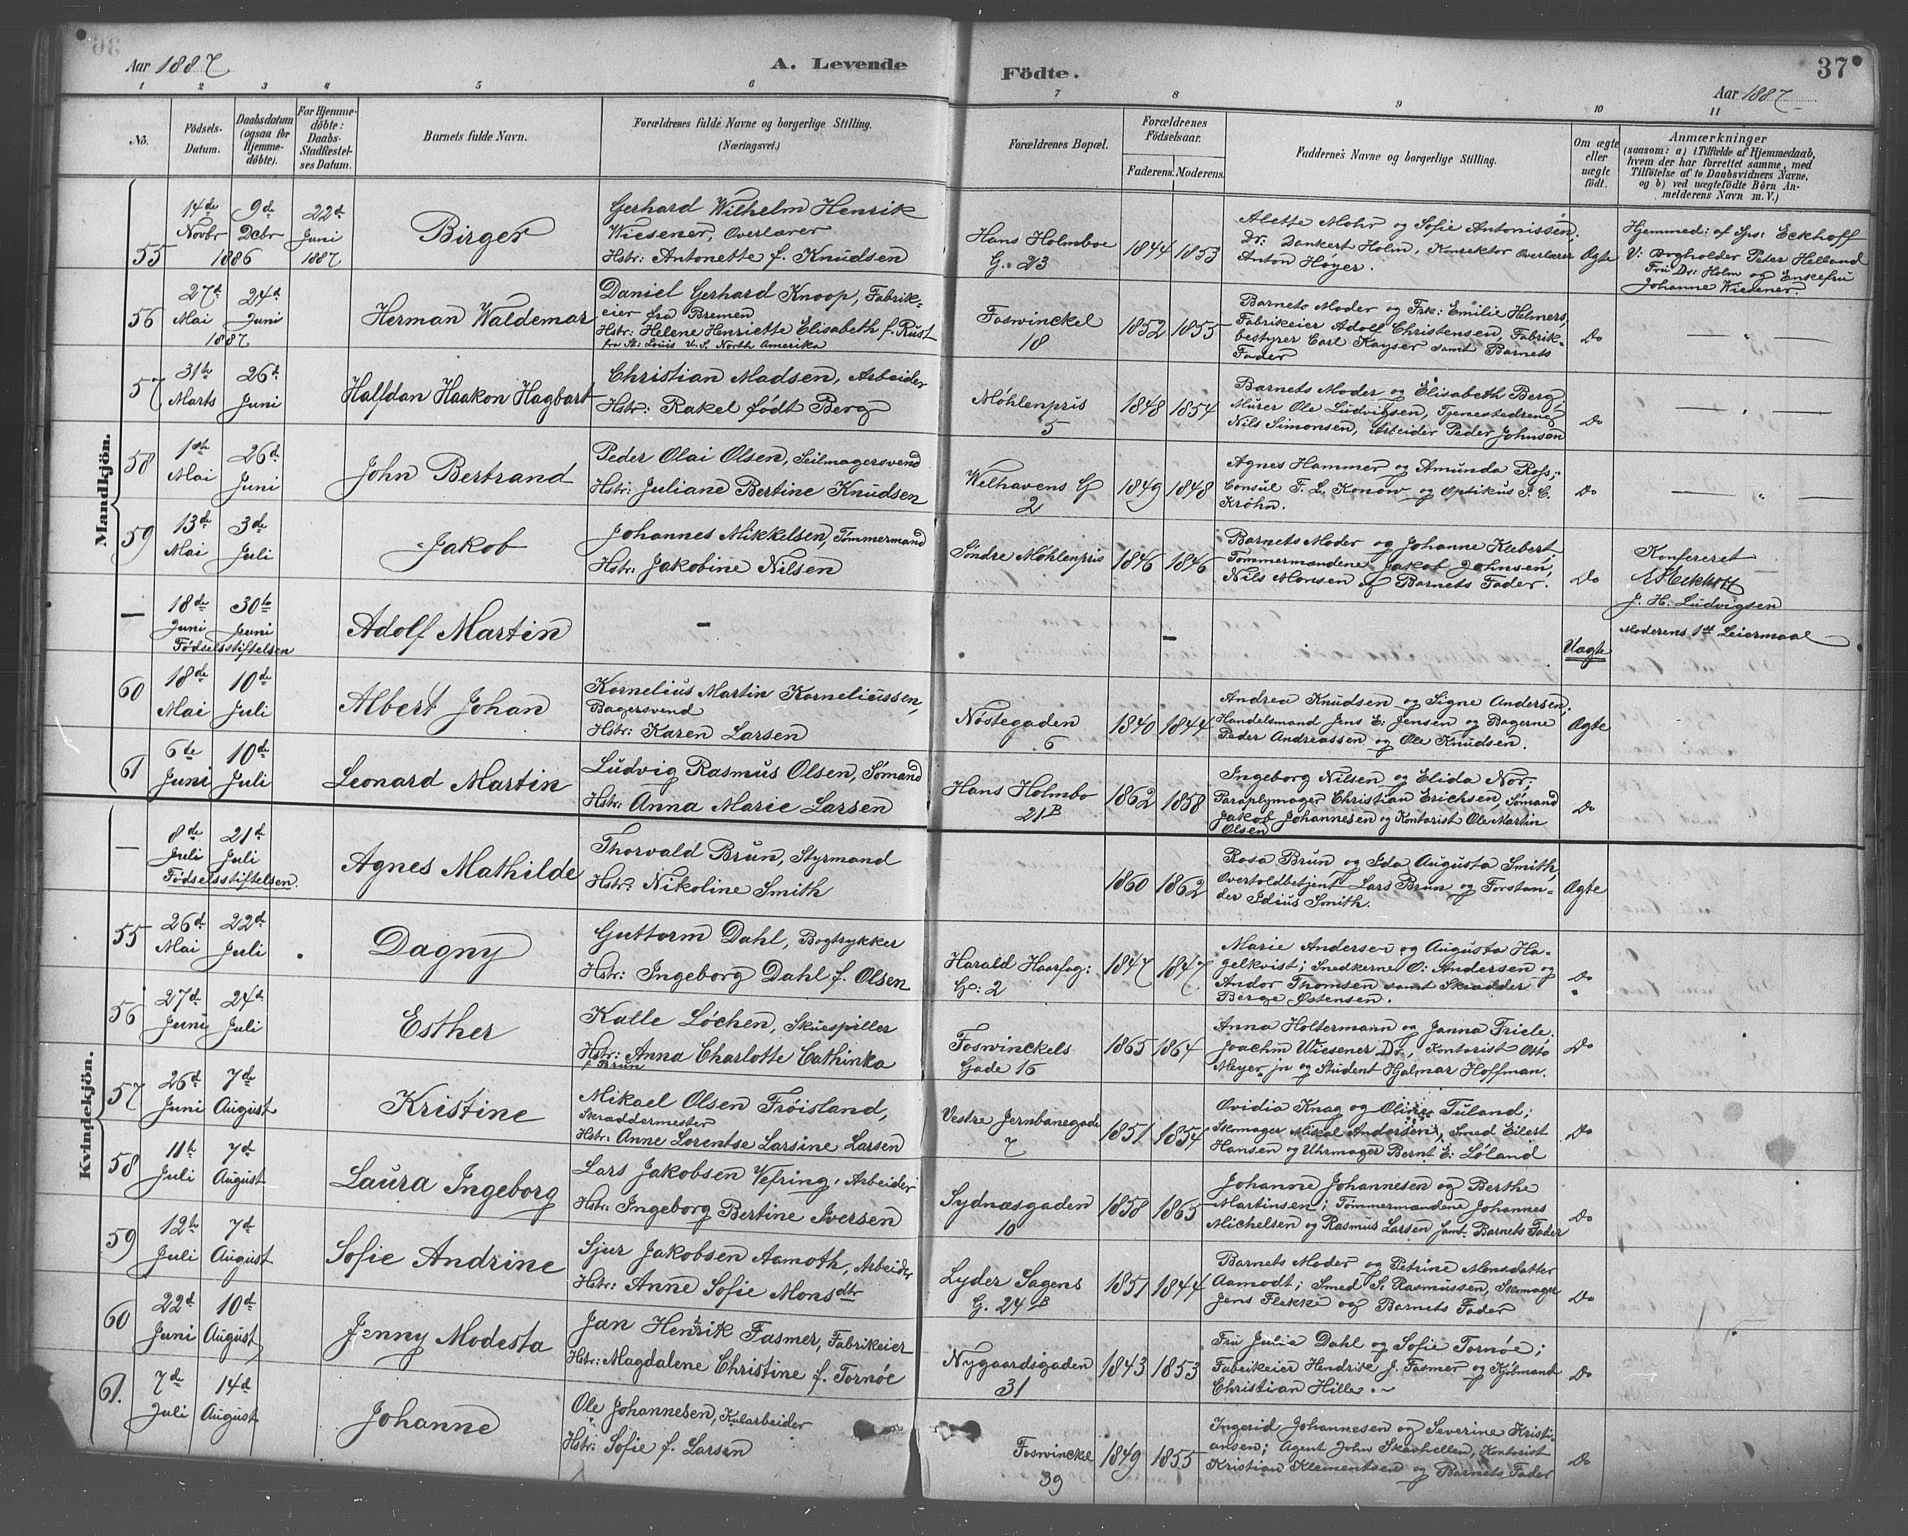 Aar 1887
A. Levende
Födte.
37
Aar 1887
1 2 3 4 5 6 7 8 9 10 11
No.
Födsels-Datum.
Daabsdatum (ogsaa for Hjemmedöbte).
For Hjemmedöbte: Daabs-Stadfæstelses Datum.
Barnets fulde Navn.
Forældrenes fulde Navne og borgerlige Stilling.
(Næringsvei.)
Forældrenes Bopæl.
Forældrenes Födselsaar.
Faderens. Moderens.
Faddernes Navne og borgerlige Stilling.
Om ægte eller uægte födt.
Anmærkninger
(saasom: a) i Tilfælde af Hjemmedaab,
hvem der har forrettet samme, med
Tilföielse af to Daabsvidners Navne,
og b) ved uægtefödte Börn An-
melderens Navn m.V.)
Mandkjön.
55
14de Novbr 1886
9de Decbr
22de Juni 1887
Birger
Gerhard Wilhelm Henrik
Wiesener, Overlærer
Hstr: Antonette f. Knudsen
Hans Holmboe
G. 23
1844 1853
Alette Mohr og Sofie Antonissen;
Dr: Dankert Holm, Konrektor Overlærer
Anton Høyer.
Ægte
Hjemmed: af Sps: Eckhoff
V: Bogholder Peter Helland
Fru Dr: Holm og Enkefru
Johanne Wiesener.
56
27de Mai 1887
24de Juni
Herman Waldemar
Daniel Gerhard Knoop, Fabrik-
eier fra Bremen
Hstr: Helene Henriette Elisabeth f. Rust
fra St: Louis U.S. North Amerika
Foswinckel
18
1852 1855
Barnets Moder og Frk: Emilie Holmers,
Fabrikeier Adolf Christensen, Fabrik-
bestyrer Carl Kayser samt Barnets
Fader
Do
— " —
57
31te Marts
26de Juni
Halfdan Haakon Hagbart
Christian Madsen, Arbeider
Hstr: Rakel født Berg
Møhlenpris
5
1848 1854
Barnets Moder og Elisabeth Berg,
Murer Ole Ludvigsen, Tjenestedreng
Nils Simonsen, Arbeider Peder Johnsen
Do
— " —
58
1ste Mai
26de Juni
John Bertrand
Peder Olai Olsen, Seilmagersvend
Hstr: Juliane Bertine Knudsen
Welhavens G
2
1849 1848
Agnes Hammer og Amunda Rofs;
Consul F. L. Konow og Optikus J. C.
Krohn.
Do
— " —
59
13de Mai
3de Juli
Jakob
Johannes Mikkelsen, Tømmermand
Hstr: Jakobine Nilsen
Søndre Møhlenpris
1846 1846
Barnets Moder og Johanne Klebert,
Tømmermandene Jakob Johnsen,
Nils Monsen og Barnets Fader.
Do
Konfereret
Eckhoff
J. H. Ludvigsen
—
18de Juni
30te Juni
Fødselsstiftelsen
Adolf Martin
—
—
Uægte
Moderens 1ste Leiermaal
60
18de Mai
10de Juli
Albert Johan
Kornelius Martin Korneliussen,
Bagersvend
Hstr: Karen Larsen
Nøstegaden
6
1840 1844
Andrea Knudsen og Signe Andersen;
Handelsmand Jens E: Jensen og Bagerne
Peder Andreassen og Ole Knudsen.
Ægte
61
6te Juni
10de Juli
Leonard Martin
Ludvig Rasmus Olsen, Sømand
Hstr: Anna Marie Larsen
Hans Holmbo
21B
1862 1858
Ingeborg Nilsen og Elida Nor;
Paraplymager Christian Erichsen, Sømand
Jakob Johannesen og Kontorist Ole Martin
Olsen
Do
Kvindekjön.
—
8de Juli
21de Juli
Fødselsstiftelsen.
Agnes Mathilde
Thorvald Brun, Styrmand
Hstr. Nikoline Smith
1860 1862
Rosa Brun og Ida Augusta Smith,
Overtoldbetjent Lars Brun og Forstan-
der Idius Smith.
Ægte
55
26de Mai
22de Juli
Dagny
Guttorm Dahl, Bogtrykker
Hstr: Ingeborg Dahl f. Olsen
Harald Haarfag:
G: 2
1847 1847
Marie Andersen og Augusta Ha-
gelkvist; Snedkerne O: Andersen og
Andor Thomsen samt Skrædder
Berge Østensen.
Do
56
27de Juni
24de Juli
Esther
Kalle Løchen, Skuespiller
Hstr: Anna Charlotte Cathinka
f Krun
Foswinckels
Gade 16
1865 1864
Anna Holtermann og Janna Friele;
Joachm Wiesener Dr., Kontorist Otto
Meyer jn og Student Hjalmar Hoffman.
Do
57
26de Juni
7de August
Kristine
Mikael Olsen Frøisland,
Skræddermester
Hstr: Anne Lorentse Larsine Larsen
Vestre Jernbanegade
7
1851 1854
Ovidia Knag og Oline Tuland;
Skomager Mikal Andersen, Smed Eilert
Hansen og Uhrmager Bernt E: Løland
Do
58
11te Juli
7de August
Laura Ingeborg
Lars Jakobsen Vefring, Arbeider
Hstr: Ingeborg Bertine Iversen
Sydnæsgaden
10
1858 1865
Johanne Johannesen og Berthe
Martinsen; Tømmermandene Johannes
Michelsen og Rasmus Larsen samt Barnets Fader
Do
59
12te Juli
7de August
Sofie Andrine
Sjur Jakobsen Aamoth, Arbeider
Hstr: Anne Sofie Monsdtr
Lyder Sagens
G. 24B
1851 1844
Barnets Moder og Petrine Monsdatter
Aamodt; Smed S: Rasmussen, Skomager
Jens Flekke og Barnets Fader
Do
60
22de Juni
10de August
Jenny Modesta
Jan Henrik Fasmer, Fabrikeier
Hstr: Magdalene Christine f. Tornøe
Nygaardsgaden
31
1843 1853
Fru Julia Dahl og Sofie Tornøe;
Fabrikeier Hendrik J. Fasmer og Kjøbmand
Christian Hille.
Do
61.
7de Juli
14de August
Johanne
Ole Johannesen, Kularbeider
Hstr: Sofie f. Larsen
Foswinckel
39
1849 1855
Ingerid Johannesen og Severine Kristi-
ansen; Agent John Skavhellen, Kontorist
Kristian Klementsen og Barnets Fader
Do